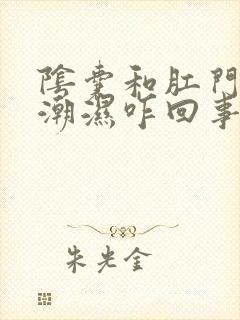 陰囊和肛門
潮濕咋回事
朱光金